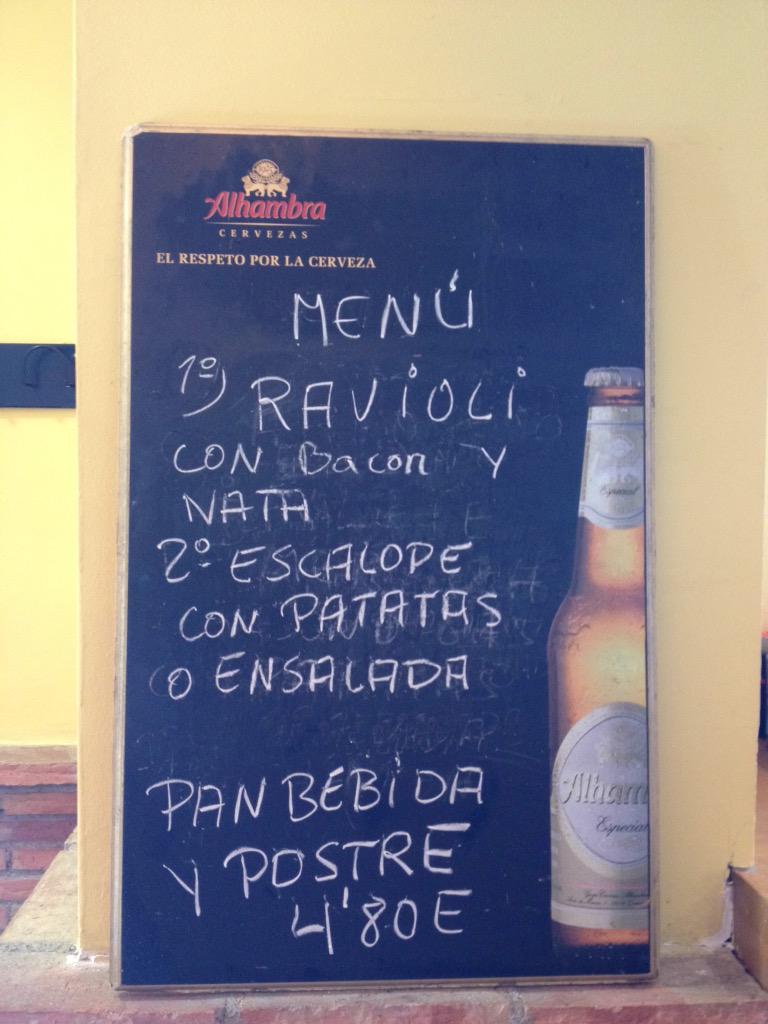 Alhambra
CERVEZAS
EL RESPETO POR LA CERVEZA
MENÚ
1º) RAVIOLI
CON Bacon Y
NATA
2º ESCALOPE
CON PATATAS
O ENSALADA
PAN BEBIDA
Y POSTRE
4'80E
Especial
Alham
Especial